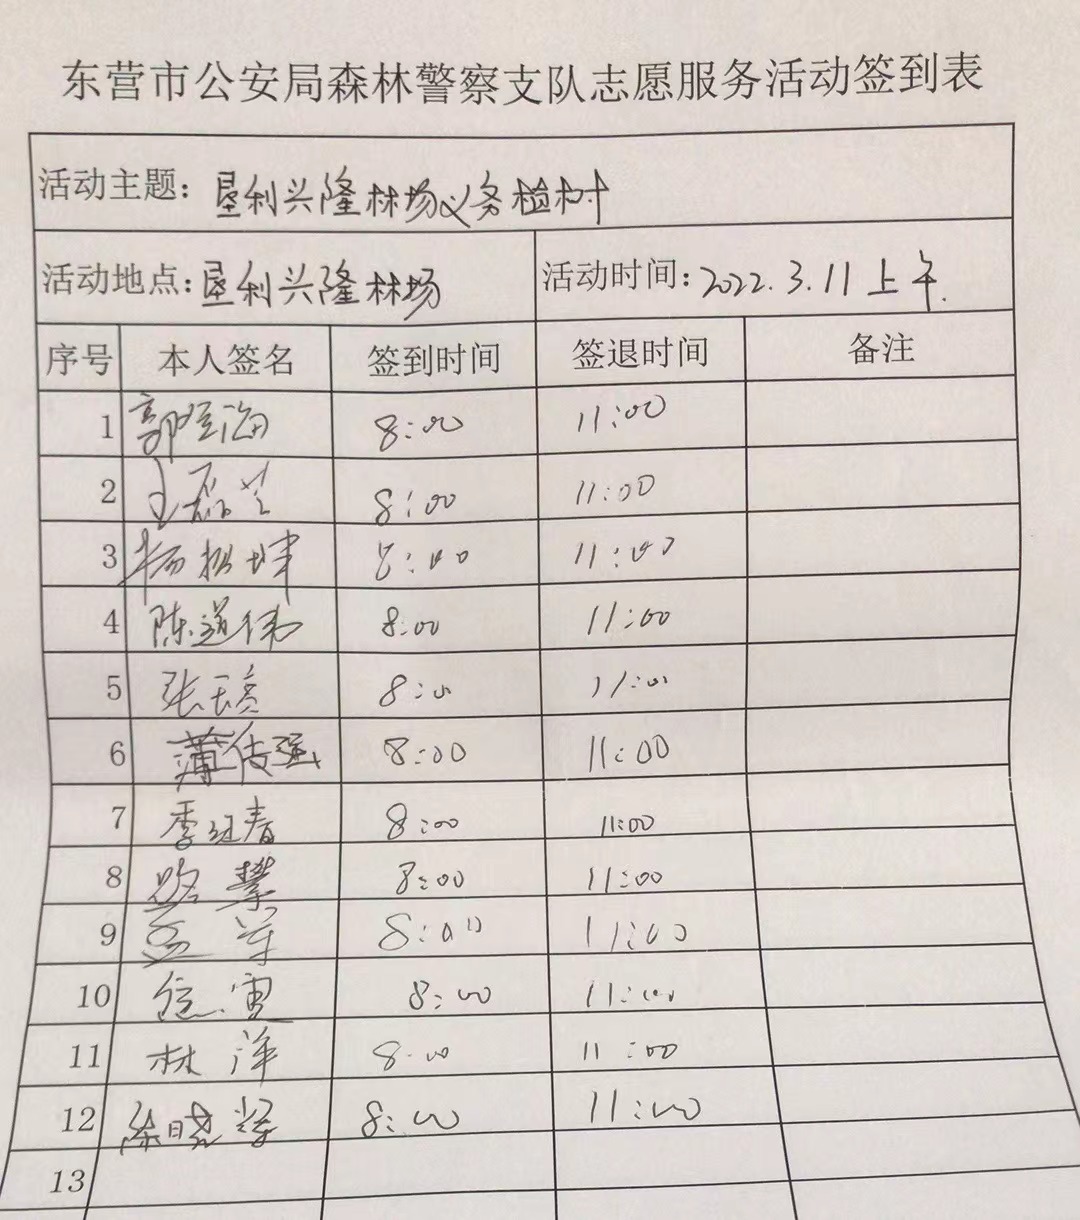 东营市公安局森林警察支队志愿服务活动签到表
活动主题: 垦利兴隆林场义务植树
活动地点: 垦利兴隆林场 活动时间: 2022.3.11上午.
序号 本人签名 签到时间 签退时间 备注
1 8:00 11:00
2 8:00 11:00
3 8:00 11:00
4 陈道伟 8:00 11:00
5 8:00 11:00
6 薄传强 8:00 11:00
7 8:00 11:00
8 8:00 11:00
9 8:00 11:00
10 8:00 11:00
11 林洋 8:00 11:00
12 8:00 11:00
13